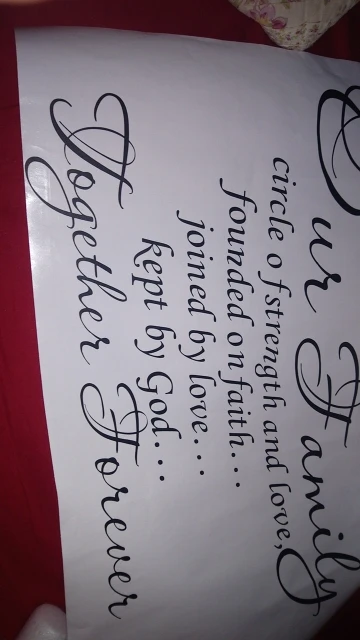 Our Family
circle of strength and love,
founded on faith...
joined by love...
kept by God...
Together Forever